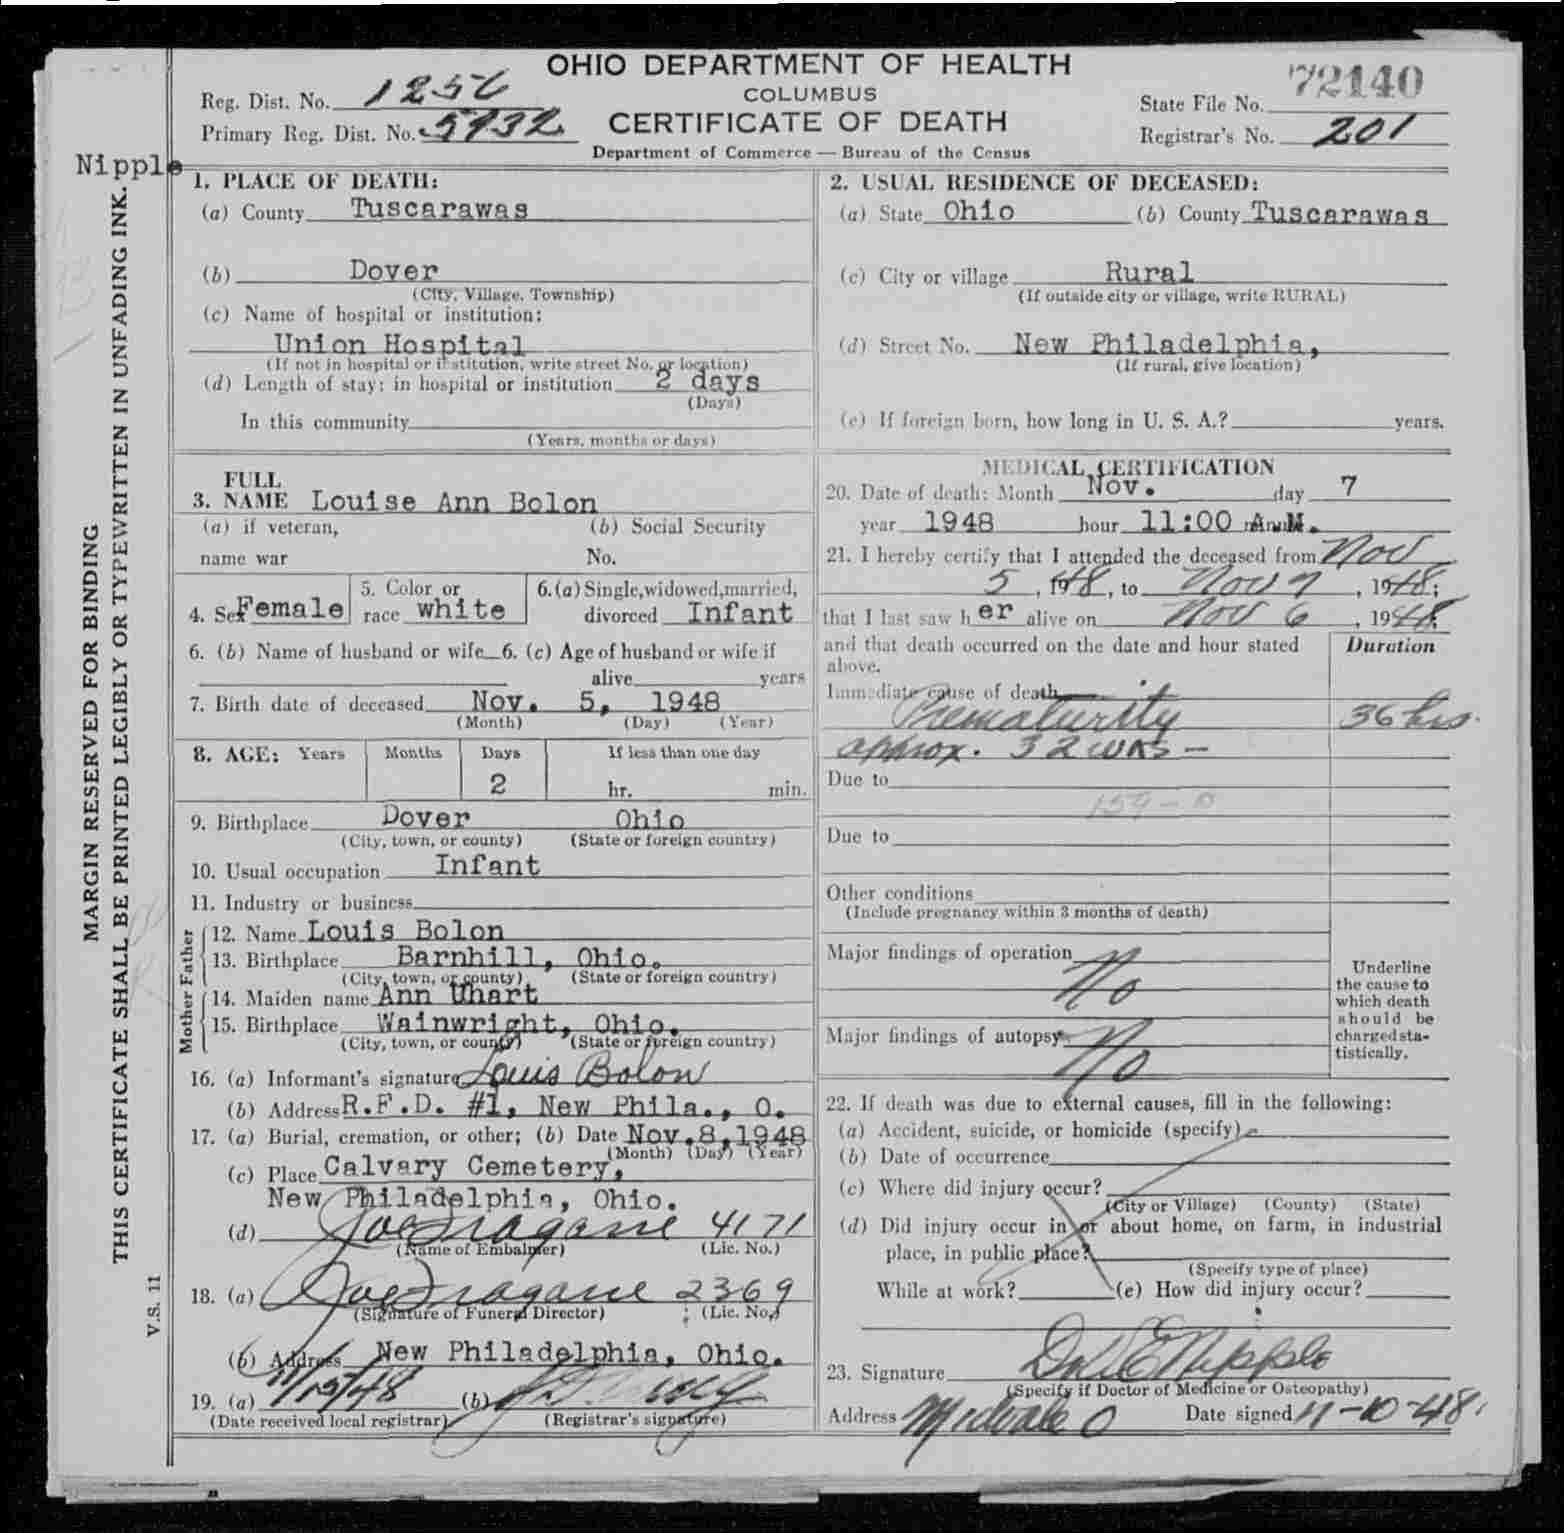 OHIO DEPARTMENT OF HEALTH
COLUMBUS
CERTIFICATE OF DEATH
Department of Commerce — Bureau of the Census
Reg. Dist. No. 1256
Primary Reg. Dist. No. 5932
State File No. 72140
Registrar's No. 201
Nipple
MARGIN RESERVED FOR BINDING
THIS CERTIFICATE SHALL BE PRINTED LEGIBLY OR TYPEWRITTEN IN UNFADING INK.
V.S. 11
1. PLACE OF DEATH:
(a) County Tuscarawas
(b) Dover
(City, Village, Township)
(c) Name of hospital or institution:
Union Hospital
(If not in hospital or institution, write street No. or location)
(d) Length of stay: in hospital or institution 2 days
(Days)
In this community
(Years, months or days)
2. USUAL RESIDENCE OF DECEASED:
(a) State Ohio (b) County Tuscarawas
(c) City or village Rural
(If outside city or village, write RURAL)
(d) Street No. New Philadelphia,
(If rural, give location)
(e) If foreign born, how long in U. S. A.? years.
FULL
3. NAME Louise Ann Bolon
(a) if veteran, (b) Social Security
name war No.
4. Sex Female 5. Color or race white 6. (a) Single, widowed, married, divorced Infant
6. (b) Name of husband or wife 6. (c) Age of husband or wife if
alive years
7. Birth date of deceased Nov. 5, 1948
(Month) (Day) (Year)
8. AGE: Years Months Days If less than one day
2 hr. min.
9. Birthplace Dover Ohio
(City, town, or county) (State or foreign country)
10. Usual occupation Infant
11. Industry or business
Father
12. Name Louis Bolon
13. Birthplace Barnhill, Ohio.
(City, town, or county) (State or foreign country)
Mother
14. Maiden name Ann Uhart
15. Birthplace Wainwright, Ohio.
(City, town, or county) (State or foreign country)
16. (a) Informant's signature Louis Bolon
(b) Address R.F.D. #1, New Phila., O.
17. (a) Burial, cremation, or other; (b) Date Nov. 8, 1948
(Month) (Day) (Year)
(c) Place Calvary Cemetery,
New Philadelphia, Ohio.
(d) Joe 4171
(Name of Embalmer) (Lic. No.)
18. (a) Joe 2369
(Signature of Funeral Director) (Lic. No.)
(b) Address New Philadelphia, Ohio.
19. (a) 11/15/48 (b)
(Date received local registrar) (Registrar's signature)
MEDICAL CERTIFICATION
20. Date of death: Month Nov. day 7
year 1948 hour 11:00 A.M.
21. I hereby certify that I attended the deceased from Nov
5, 1948, to Nov 7, 1948;
that I last saw her alive on Nov 6, 1948
and that death occurred on the date and hour stated
above.
Duration
Immediate cause of death
Prematurity 36 hrs.
approx. 32 wks —
Due to
159-0
Due to
Other conditions
(Include pregnancy within 3 months of death)
Major findings of operation
No
Major findings of autopsy
No
Underline
the cause to
which death
should be
charged sta-
tistically.
22. If death was due to external causes, fill in the following:
(a) Accident, suicide, or homicide (specify)
(b) Date of occurrence
(c) Where did injury occur?
(City or Village) (County) (State)
(d) Did injury occur in or about home, on farm, in industrial
place, in public place?
(Specify type of place)
While at work? (e) How did injury occur?
23. Signature E Nipple
(Specify if Doctor of Medicine or Osteopathy)
Address Midvale O Date signed 11-10-48.